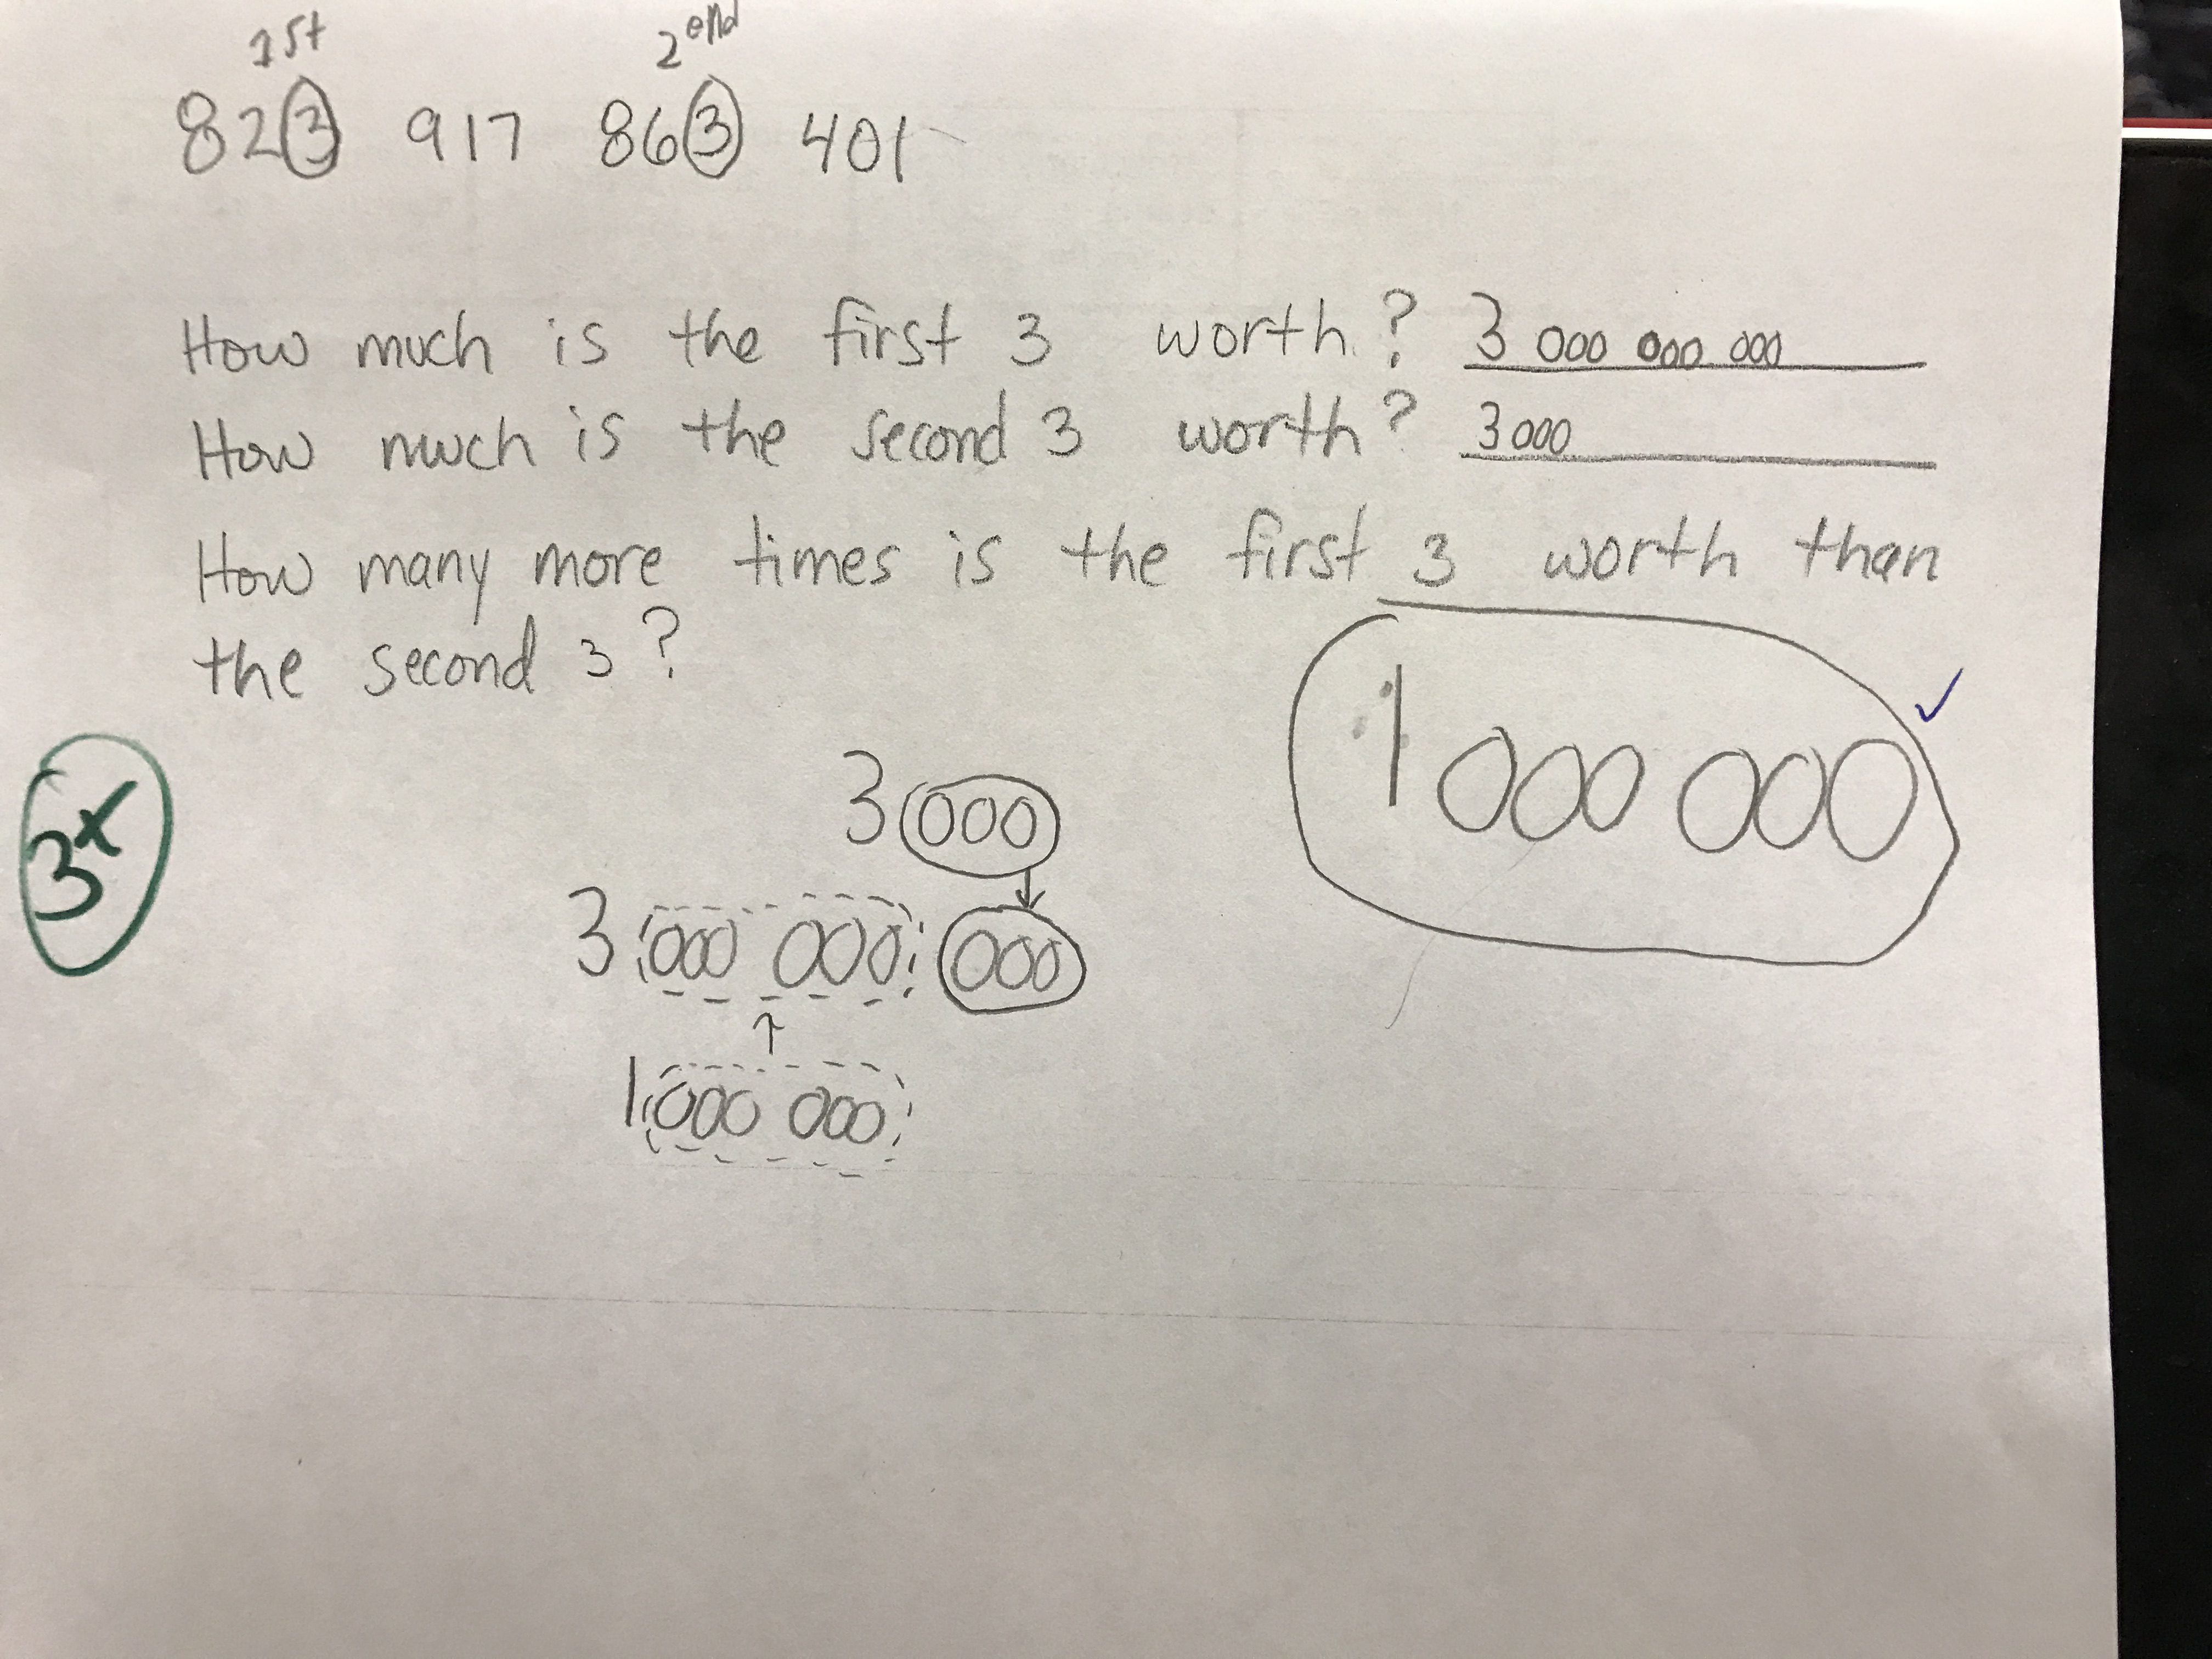 1st 2end
823 917 863 401
How much is the first 3 worth? 3 000 000 000
How much is the second 3 worth? 3000
How many more times is the first 3 worth than
the second 3?
1 000 000 ✓
3x
3 000
3 000 000 000
1 000 000